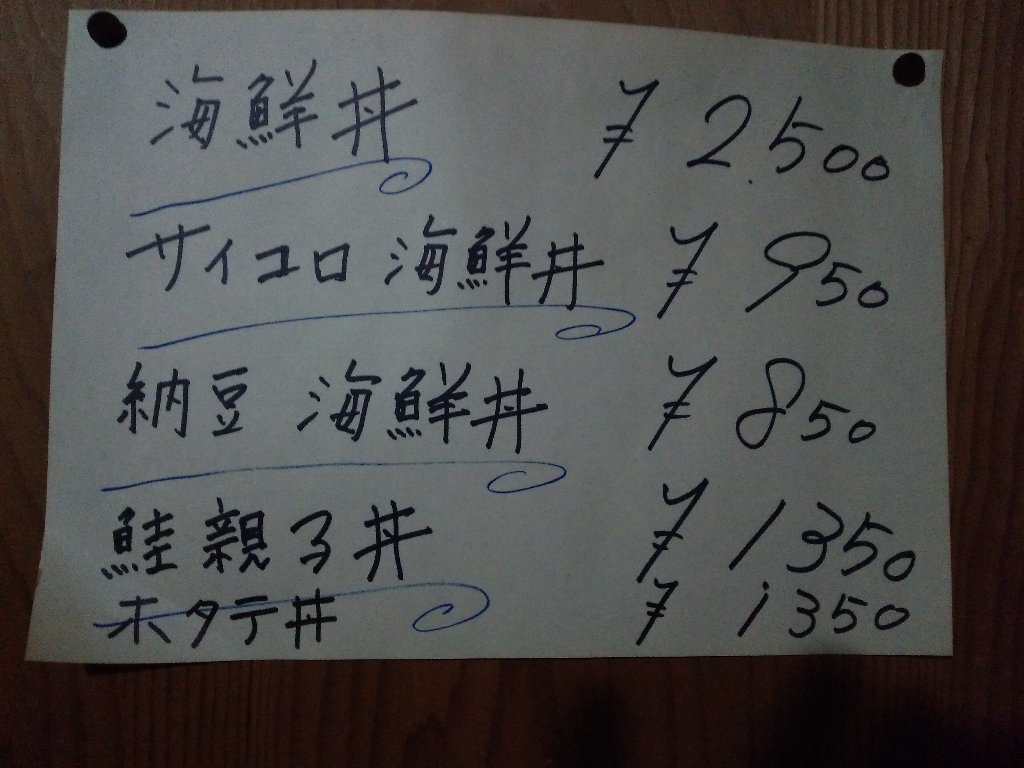 海鮮丼 ¥2,500
サイコロ海鮮丼 ¥950
納豆 海鮮丼 ¥850
鮭親子丼 ¥1350
ホタテ丼 ¥1350